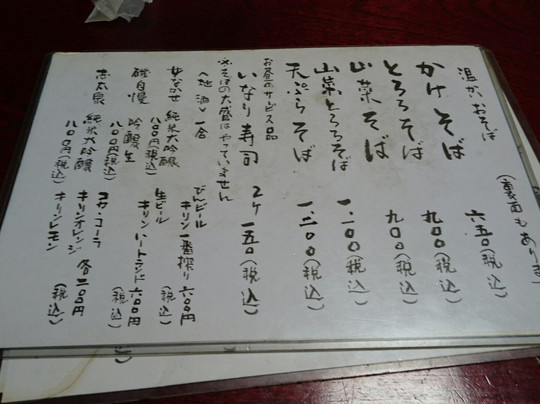 温かいおそば
(裏面もあります
かけそば 六五〇(税込)
とろろそば 九〇〇(税込)
山菜そば 九〇〇(税込)
山菜とろろそば 一、一〇〇(税込)
天ぷらそば 一、三〇〇(税込)
お昼のサービス品
いなり寿司 2ヶ 一五〇(税込)
※そばの大盛はやっていません
〈地酒〉一合
女なかせ 純米大吟醸 八〇〇円(税込)
磯自慢 吟醸生 八〇〇円(税込)
志太泉 純米大吟醸 八〇〇円(税込)
びんビール キリン一番搾り 六〇〇円(税込)
生ビール キリンハートランド 六〇〇円(税込)
コカ・コーラ
キリンオレンジ 各二〇〇円
キリンレモン (税込)